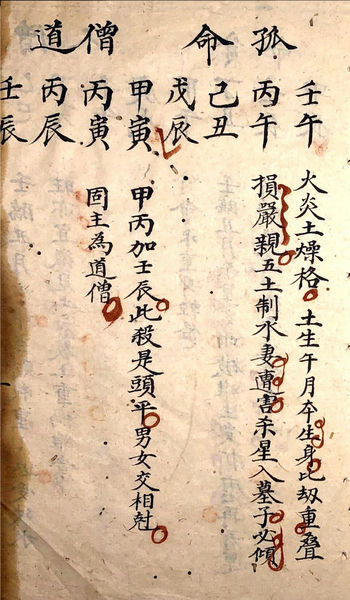 孤命
壬午 火炎土燥格 土生午月夲生身比劫重疊
丙午 損嚴親五土制水妻遭害杀星入墓子必傾
己丑
戊辰
僧道
甲寅 甲丙加壬辰此殺是頭平男女交相尅
丙寅 固主為道僧
丙辰
壬辰